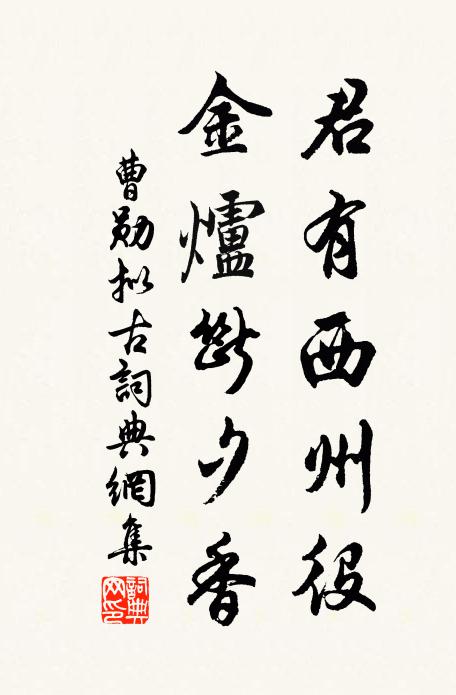 君有西州役
金爐斷夕香
曹勛拟古詞典網集
詞典网印